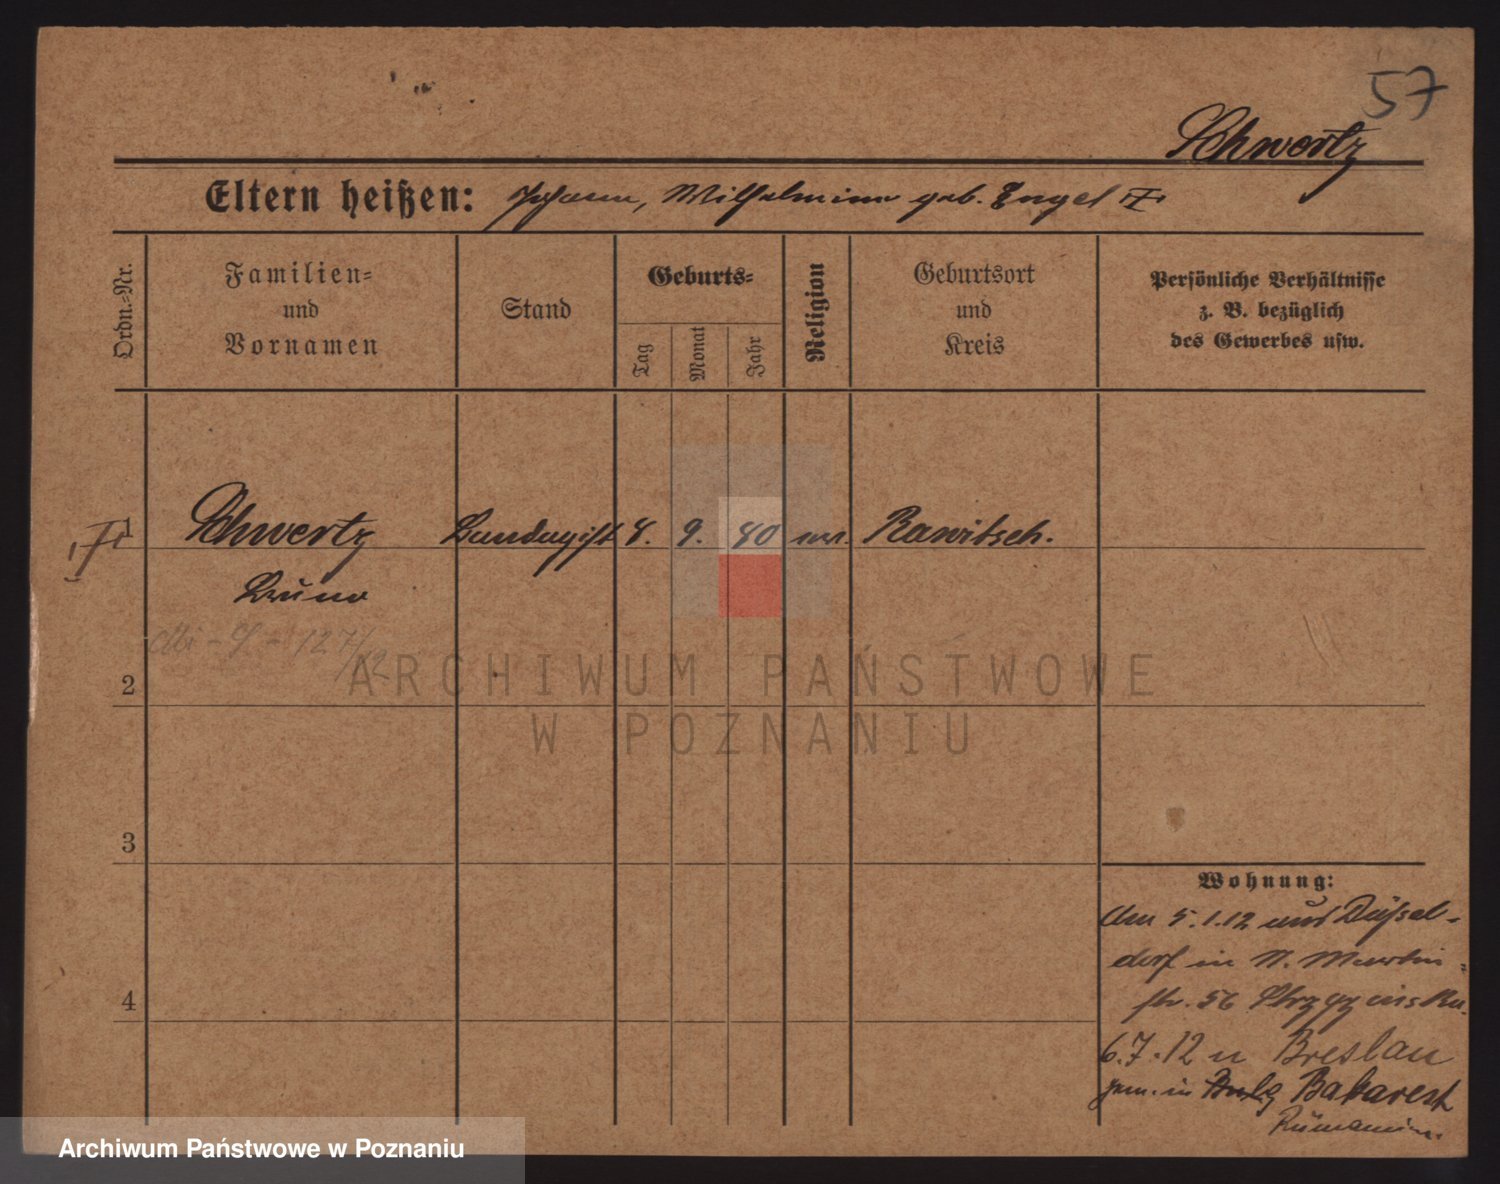 57
Schwertz
Eltern heißen: Johann, Wilhelmine geb. Engel
Ordn.-Nr.
Familien-
und
Vornamen
Stand
Geburts-
Tag
Monat
Jahr
Religion
Geburtsort
und
Kreis
Persönliche Verhältnisse
z. B. bezüglich
des Gewerbes usw.
1 Schwertz 8. 9. 80 Rawitsch.
Bruno
127/12
2
3
4
Wohnung:
Am 5.1.12 aus Düssel-
dorf in St. Martin-
str. 56
6.7.12 n Breslau
in Bukarest
Rumänien.
ARCHIWUM PAŃSTWOWE
W POZNANIU
Archiwum Państwowe w Poznaniu